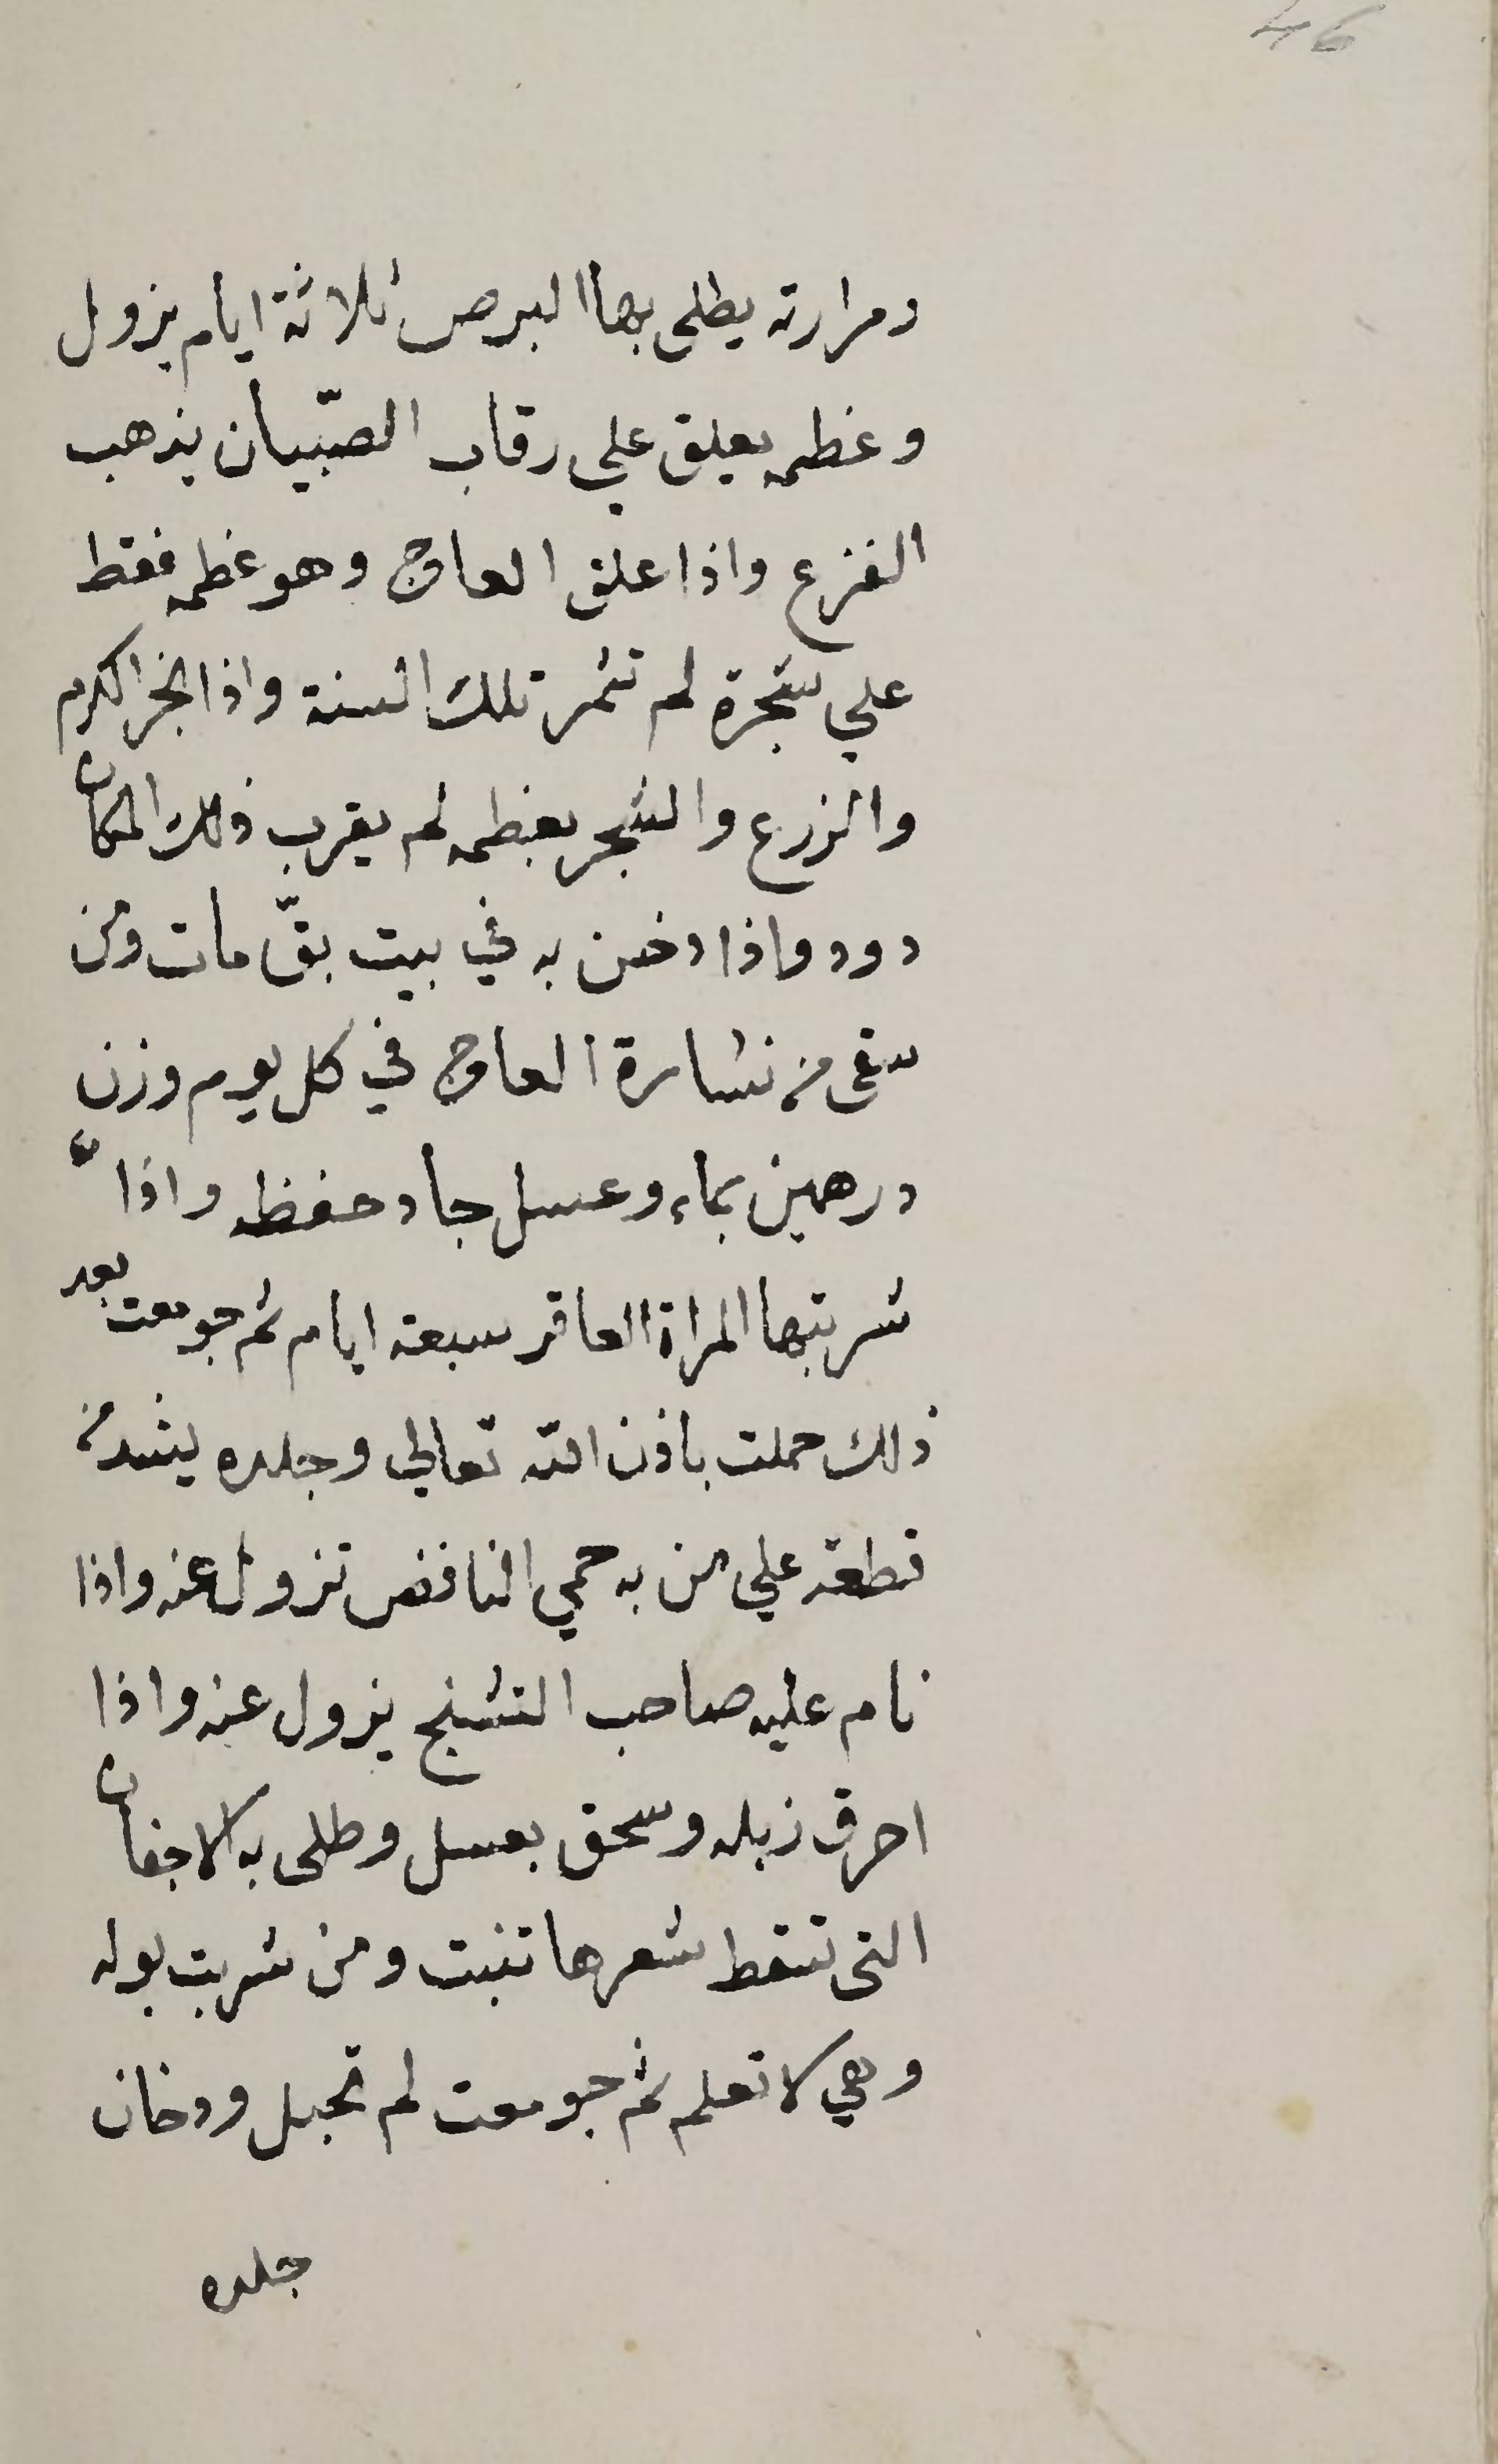 46
ومرارته يطلى بها البرص ثلاثة ايام يزول
وعظمه يعلق علي رقاب الصّبيان يذهب
الفزع واذا علق العاج وهو عظمه فقط
علي شجرة لم تثمر تلك السنة واذا بخر الكرم
والزرع والشجر بعظمه لم يقرب ذلك المكان
دود واذا دخن به في بيت بقّ مات ومن
سقى من نشارة العاج في كل يوم وزن
درهمين بماء وعسل جاد حفظه واذا
شربتها المراة العاقر سبعة ايام ثم جومعت بعد
ذلك حملت باذن الله تعالي وجلده يشد منه
قطعة علي من به حمي النافض تزول عنه واذا
نام عليه صاحب التشنج يزول عنه واذا
احرق زبله وسحق بعسل وطلى به الاجفان
التى تسقط شعرها تنبت ومن شربت بوله
وهي لا تعلم ثم جومعت لم تحبل ودخان
جلده